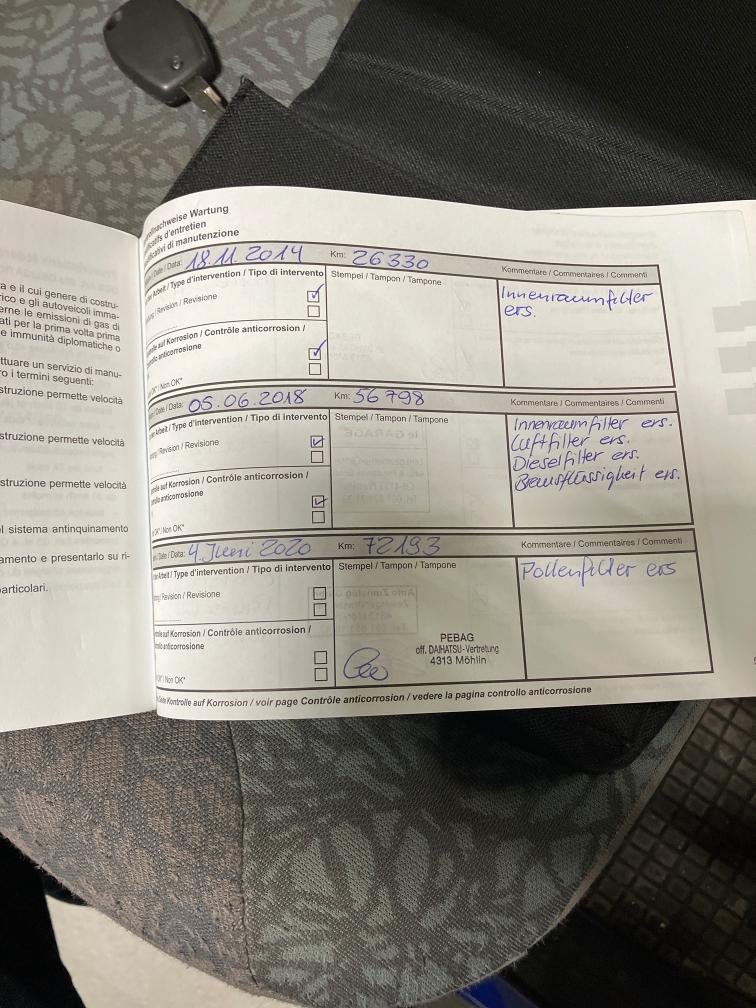 a e il cui genere di costru-
rico e gli autoveicoli imma-
erne le emissioni di gas di
ati per la prima volta prima
e immunità diplomatiche o
ttuare un servizio di manu-
o i termini seguenti:
struzione permette velocità
struzione permette velocità
struzione permette velocità
l sistema antinquinamento
amento e presentarlo su ri-
articolari.
nachweise Wartung
d'entretien
di manutenzione
Date / Data: 18.11.2014 Km: 26330
Arbeit / Type d'intervention / Tipo di intervento Stempel / Tampon / Tampone Kommentare / Commentaires / Commenti
/ Revision / Revisione
Innenraumfilter
ers.
auf Korrosion / Contrôle anticorrosion /
anticorrosione
OK* / Non OK*
Date / Data: 05.06.2018 Km: 56798
Arbeit / Type d'intervention / Tipo di intervento Stempel / Tampon / Tampone Kommentare / Commentaires / Commenti
/ Revision / Revisione
Innenraumfilter ers.
Luftfilter ers.
Dieselfilter ers.
Bremsflüssigkeit ers.
auf Korrosion / Contrôle anticorrosion /
anticorrosione
OK* / Non OK*
Date / Data: 4. Juni 2020 Km: 72193
Arbeit / Type d'intervention / Tipo di intervento Stempel / Tampon / Tampone Kommentare / Commentaires / Commenti
/ Revision / Revisione
Pollenfilter ers
auf Korrosion / Contrôle anticorrosion /
anticorrosione
OK* / Non OK*
PEBAG
off. DAIHATSU-Vertretung
4313 Möhlin
Seite Kontrolle auf Korrosion / voir page Contrôle anticorrosion / vedere la pagina controllo anticorrosione